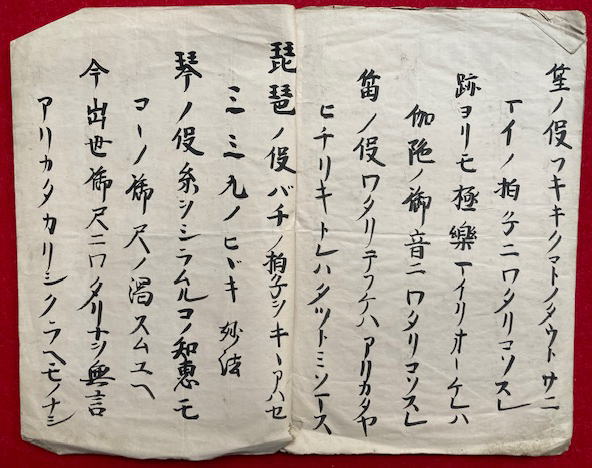 笙ノ役フキキクマトノタウトサニ
マイノ拍子ニワタリコソスレ
跡ヨリモ極樂マイリオーケレハ
伽陀ノ御音ニワタリコソスレ
笛ノ役ワタリテフケハアリカタヤ
ヒチリキトレハタツトミソマース
琵琶ノ役バチノ拍子シキーアハセ
ミミ九ノヒヾキ 妙法
琴ノ役糸シシラムルコノ知恵モ
コーノ御尺ノ渇スムユヘ
今出世御尺ニワタリナシ無言
アリカタカリシクラヘモノナシ